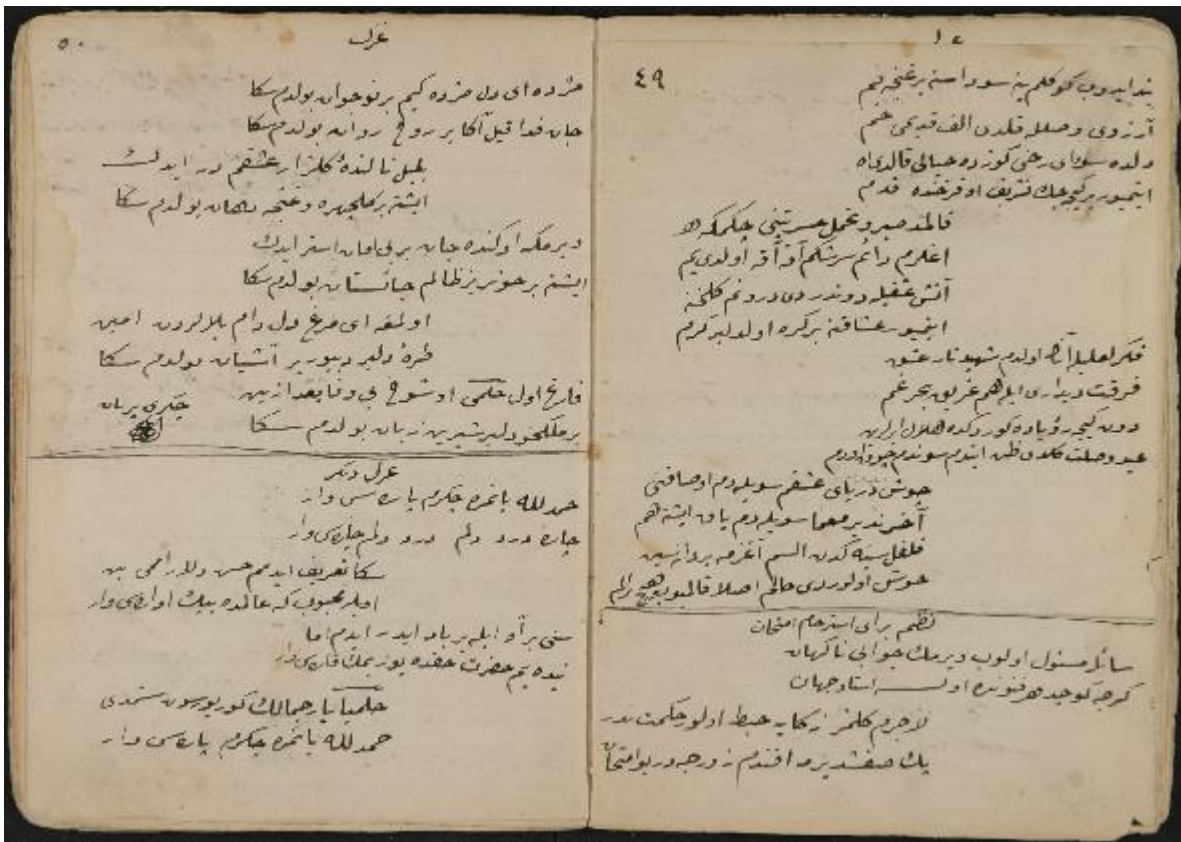 ٤٩
آرزوی وصلله قلدی الف قدیمی خم
دلده سودای رخی کوزده خیالی قالدی اه
ایتمیور بر کیجه جك تشریف او فرخنده قدم
قالمدی صبر و تحمل حسرتنی چکمکه هیچ
اغلرم دائم سرشکم آقه آقه اولدی یم
آتش عشقیله دوندردی درونم کلخنه
ایتمیور عشاقنه بر کره اولدلبر کرم
فکر لعلیله اولدم شهید نار عشق
فرقت دیداری ایله هم غریق بحر غم
دون کیجه رؤیاده کوردکده هلال ابرولرن
عید وصلت کلدی ظن ایتدم سوندم
جوش دریای عشقم سویله دم اوصافنی
آخرنده بر معما سویله دم
خوش اولوردی حالم اصلا قالمیوب
نظم برای استرحام امتحان
سائله مسئول اولوب ویرمك جوابی ناکهان
کرچه کوجدر هر فنونده اولسه استاد جهان
لاجرم کلمز زکایه ضبط اولور حکمت ندر
یك صفتدیر افندم نه درجه در بو امتحان
٥٠
غزل
مژده ای دل مژده کیم بر نوجوان بولدم سکا
جان فدا قیل آکا بر روح روان بولدم سکا
بلبل نالندۀ کلزار عشقم در ایدك
ایشته بر کلچهره و غنچه دهان بولدم سکا
ویرمکه اوکنده جان بر بی امان استر ایدك
ایشته بر خونریز ظالم جانستان بولدم سکا
اولمغه ای مرغ دل دام بلالردن امین
طرۀ دلبر دیور بر آشیان بولدم سکا
فارغ اول حکمی او شوخ بی وفا بعد ازین
بر دلبر شیرین زبان بولدم سکا
جکری بریان
غزل دیکر
حمد لله یا نمره جکرم یاره سی وار
چاره درد دلم درد دلم چاره سی وار
سکا تعریف ایدمم حسن دلارامی بن
اویله محبوب که عالمده بیك اواره سی وار
سنی بر آه ایله بر باد ایدر ایدم اما
نیده یم حضرت حقده یوزیمك قاره سی وار
حکمیا یار جمالك کوریورسون شمدی
حمد لله یا نمره جکرم یاره سی وار